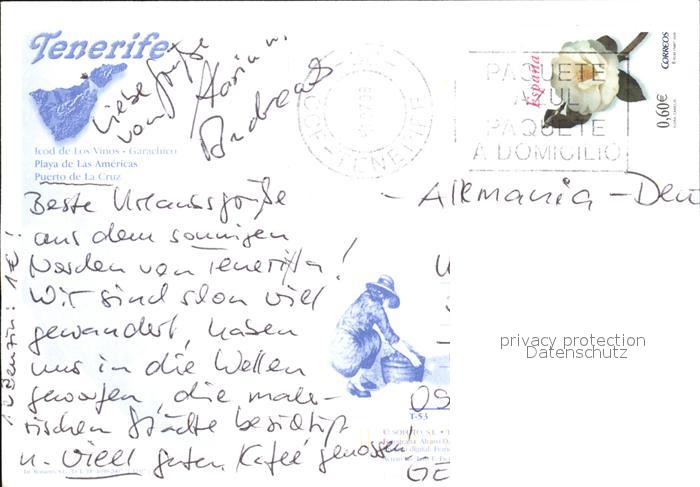 Tenerife
Liebe Grüße
von Maria u.
Andreas
Icod de Los Vinos - Garachico
Playa de Las Américas
Puerto de La Cruz
Beste Urlaubsgrüße
aus dem sonnigen
Norden von Teneriffa!
Wir sind schon viel
gewandert, haben
uns in die Wellen
geworfen, die male-
rischen Städte besichtigt
u. viel guten Kaffee genossen!
1 l Benzin: 1 €!
TENERIFE
PAQUETE
AZUL
PAQUETE
A DOMICILIO
España
CORREOS
0,60€
- Allemania - Deu
privacy protection
Datenschutz
09
T-53
GE